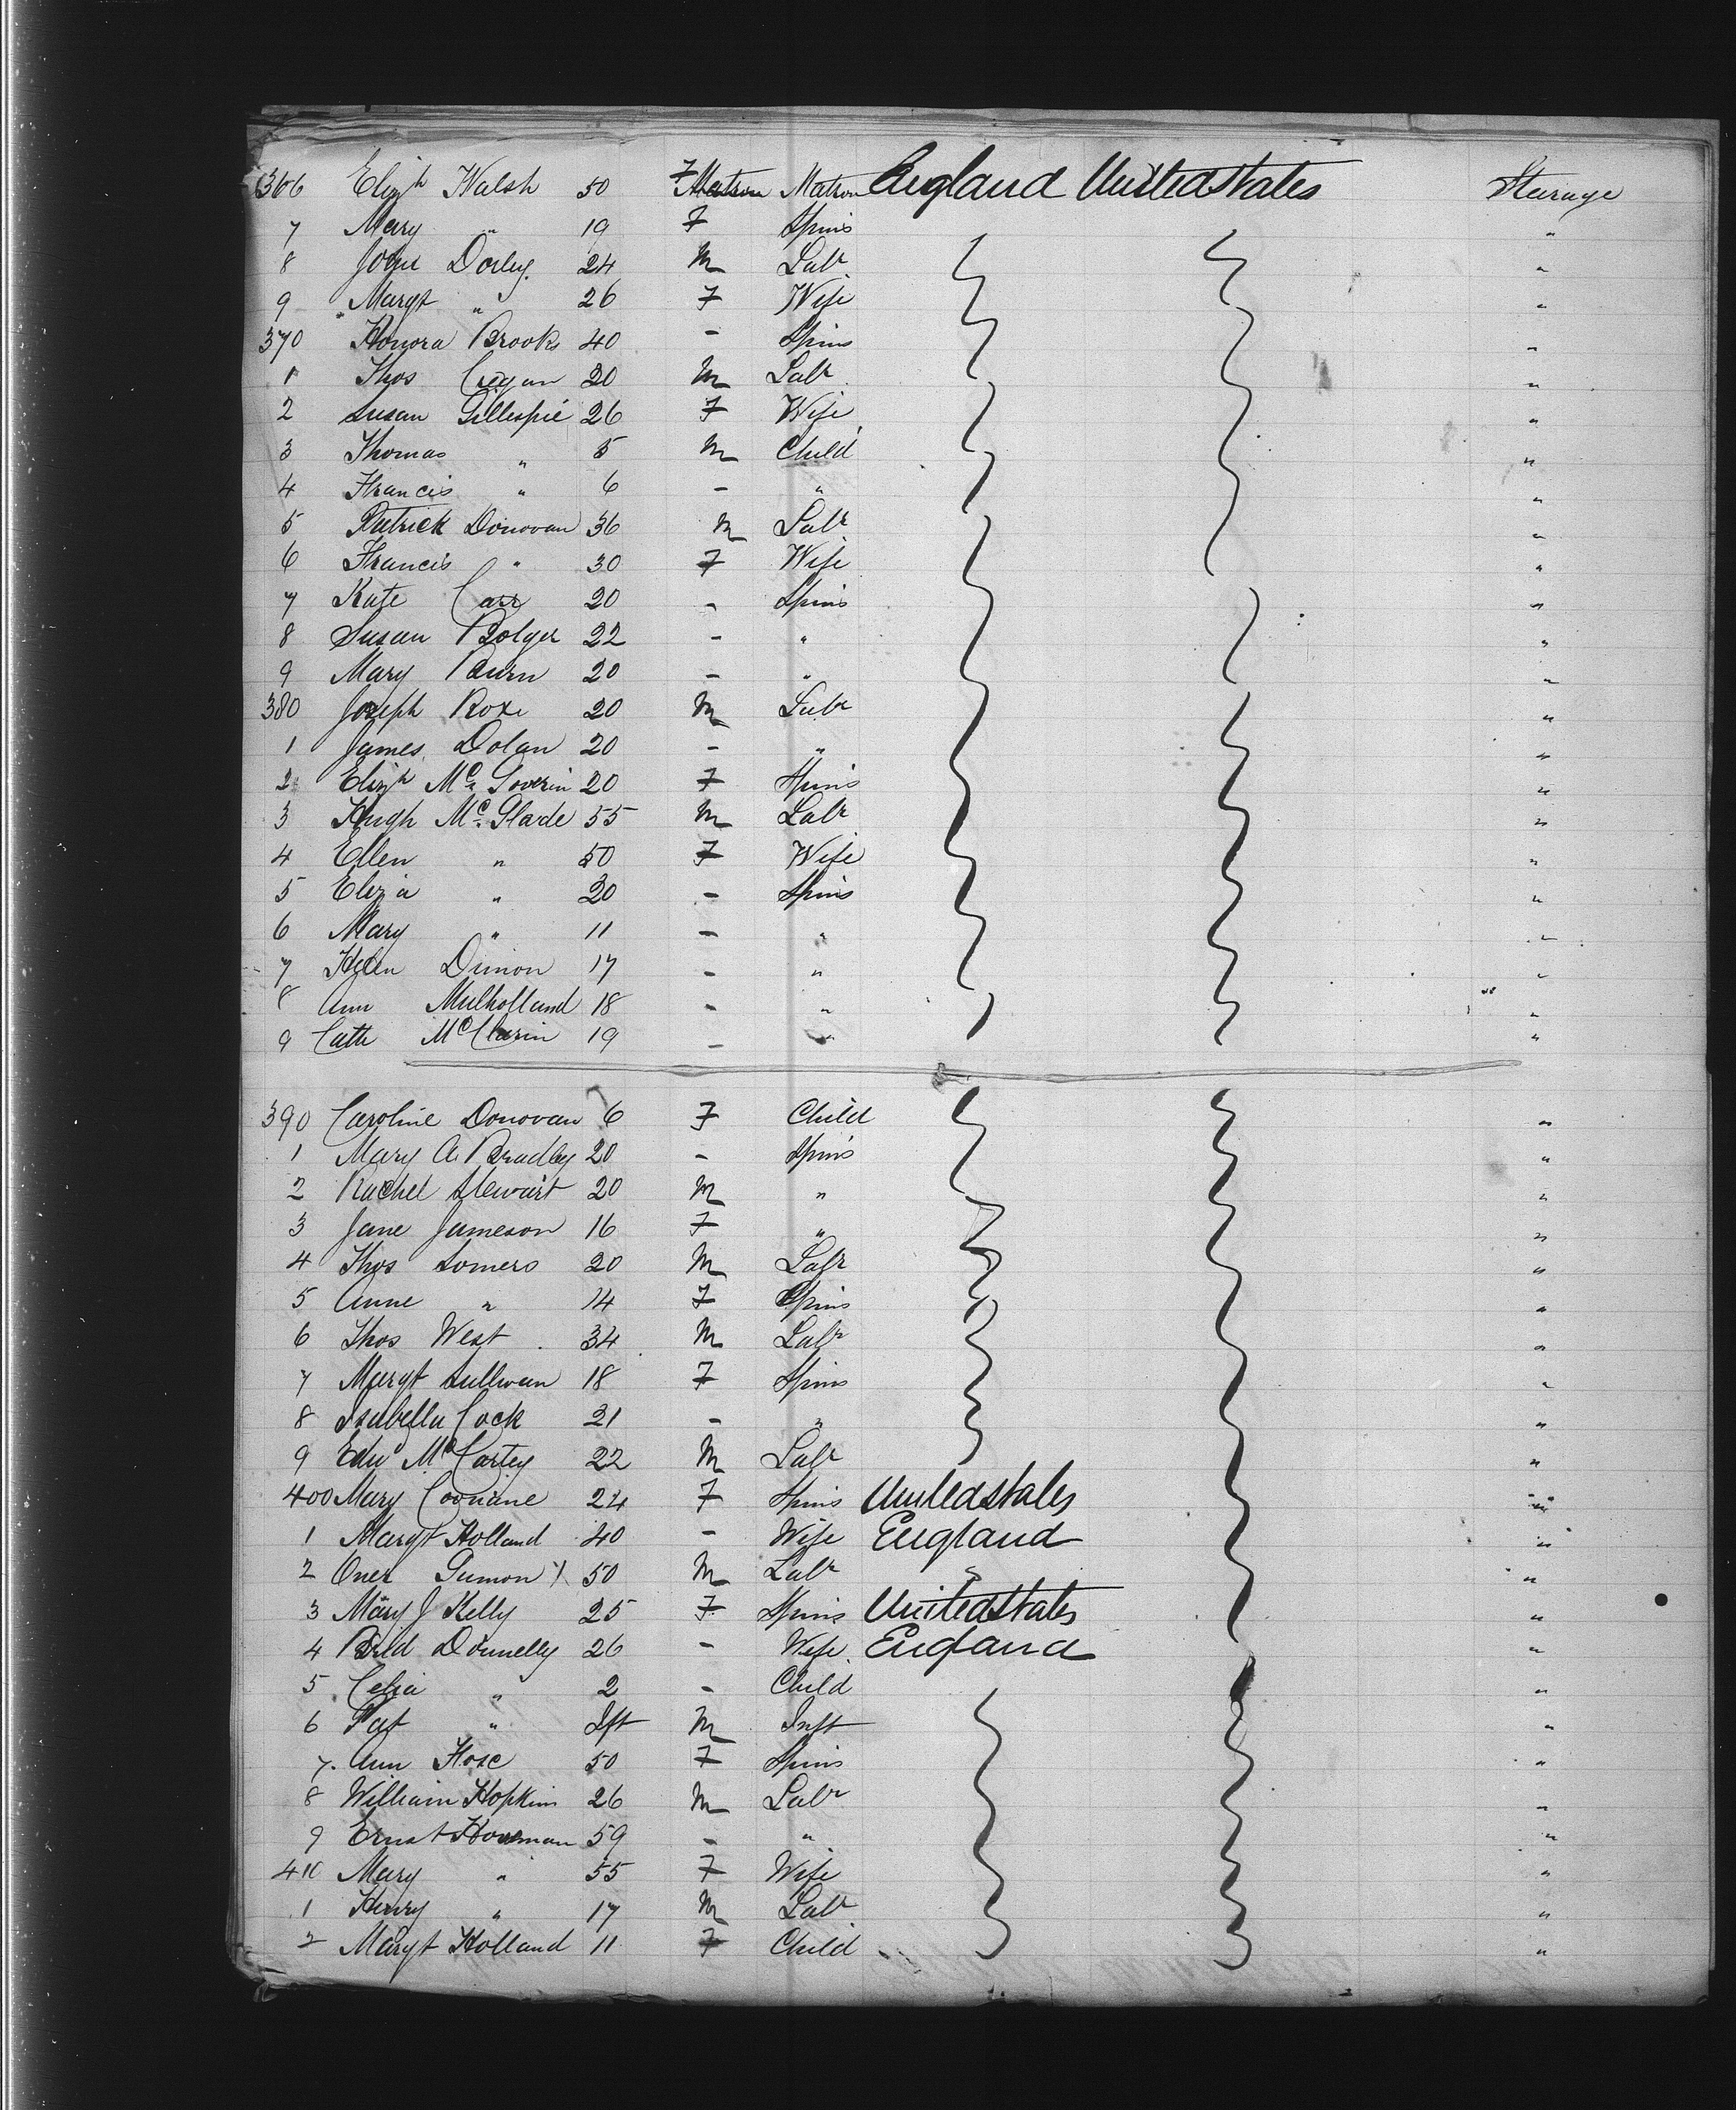 366 Elizh Walsh 50 F Matron Matron England United States Steerage
7 Mary " 19 F Spins "
8 John Dorley 24 M Labr "
9 Margt " 26 F Wife "
370 Honora Brooks 40 - Spins "
1 Thos Cregan 20 M Labr "
2 Susan Gillespie 26 F Wife "
3 Thomas " 5 M Child "
4 Francis " 6 - " "
5 Patrick Donovan 36 M Labr "
6 Francis " 30 F Wife "
7 Kate Carr 20 - Spins "
8 Susan Bolger 22 - " "
9 Mary Burn 20 - " "
380 Joseph Roxe 20 M Labr "
1 James Dolan 20 - " "
2 Elizh Mc Goverin 20 F Spins "
3 Hugh Mc Glade 55 M Labr "
4 Ellen " 50 F Wife "
5 Eliza " 20 - Spins "
6 Mary " 11 - " "
7 Helen Dimon 17 - " "
8 Ann Mulholland 18 - " "
9 Cath McClarin 19 - " "
390 Caroline Donovan 6 F Child "
1 Mary A. Bradley 20 - Spins "
2 Rachel Stewart 20 M " "
3 Jane Jameson 16 F " "
4 Thos Somers 20 M Labr "
5 Anne " 14 F Spins "
6 Thos West 34 M Labr "
7 Margt Sullivan 18 F Spins "
8 Isabella Cock 21 - " "
9 Edwd McCartey 22 M Labr "
400 Mary 24 F Spins United States "
1 Margt Holland 40 - Wife England "
2 Oner 50 M Labr " "
3 Mary J Kelly 25 F Spins United States "
4 Brid Donnelly 26 - Wife England "
5 Celia " 2 - Child "
6 Pat " Ift M Inft "
7 Ann Hose 50 F Spins "
8 William Hopkins 26 M Labr "
9 Ernst 59 - " "
410 Mary " 55 F Wife "
1 Henry " 17 M Labr "
2 Margt Holland 11 F Child "